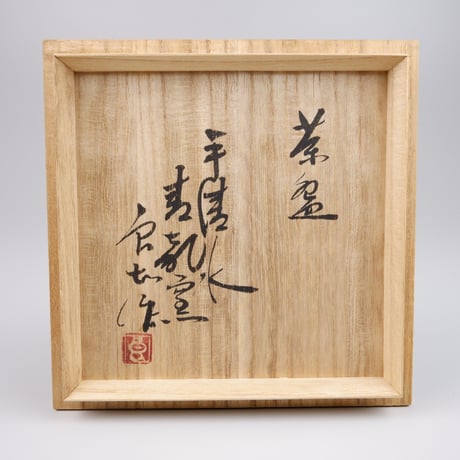 茶盌
平清水
青龍窯
良知作